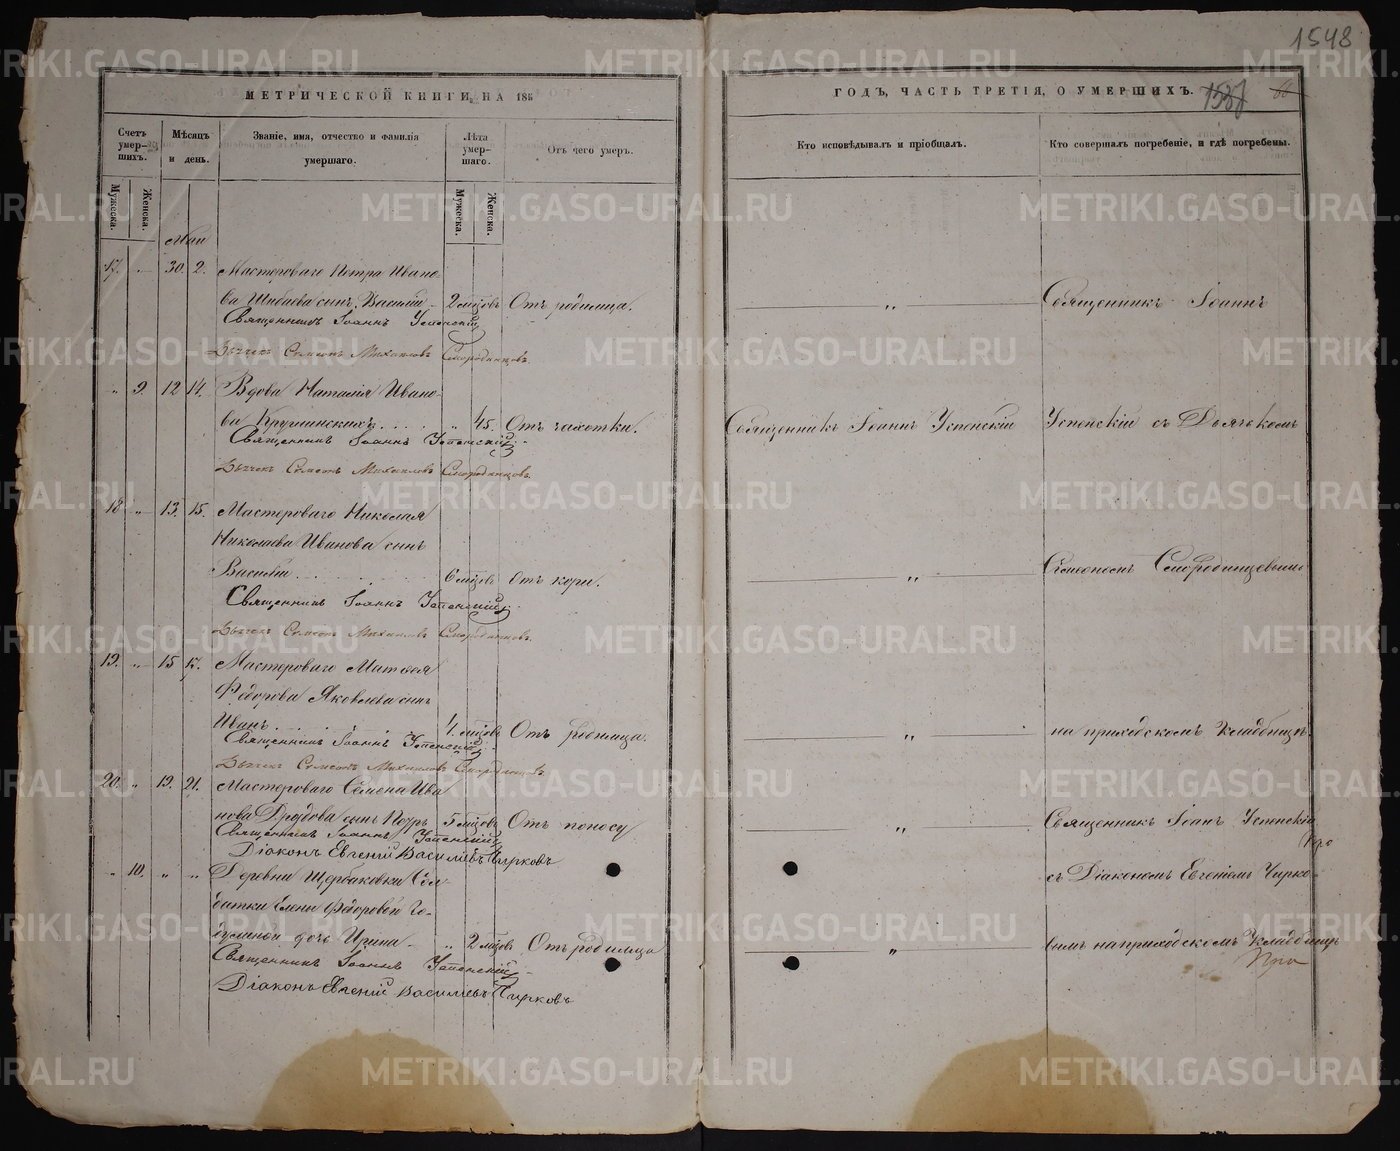 1548
МЕТРИЧЕСКОЙ КНИГИ, НА 185
Счетъ умер-шихъ.
Мужеска.
Женска.
Мѣсяцъ и день.
Званіе, имя, отчество и фамилія умершаго.
Лѣта умер-шаго.
Мужеска.
Женска.
Отъ чего умеръ.
Маи
17. „ 30. 2. Мастероваго Петра Ивано-
ва Шибаева сынъ Василій 2 мѣсцовъ Отъ родимца.
Священникъ Іоаннъ Успенскій
Дьячекъ Симеонъ Михаиловъ Смородинцовъ.
„ 9. 12 14. Вдова Наталія Ивано-
ва Кругшинскихъ . . . . „ 45. Отъ чахотки.
Священникъ Іоаннъ Успенскій
Дьячекъ Симеонъ Михаиловъ Смородинцовъ.
18 „ 13. 15. Мастероваго Николая
Николаева Иванова сынъ
Василій . . . 6 мѣсцовъ Отъ кори.
Священникъ Іоаннъ Успенскій
Дьячекъ Симеонъ Михаиловъ Смородинцовъ.
19. „ 15 17. Мастероваго Матвея
Ѳедорова Яковлева сынъ
Иванъ . . . 4. мѣсцовъ Отъ родимца.
Священникъ Іоаннъ Успенскій
Дьячекъ Симеонъ Михаиловъ Смородинцовъ.
20. „ 19. 21. Мастероваго Семена Ива
нова Дроздова сынъ Петръ 5 мѣсцовъ Отъ поносу
Священникъ Іоаннъ Успенскій
Діаконъ Евгеній Васильевъ Чирковъ
„ 10. „ „ Деревни Щербаковки Сол-
датки Елены Ѳедоровой
дочь Ирина „ 2 мѣсцовъ Отъ родимца
Священникъ Іоаннъ Успенскій
Діаконъ Евгеній Васильевъ Чирковъ
ГОДЪ, ЧАСТЬ ТРЕТІЯ, О УМЕРШИХЪ.
Кто исповѣдывалъ и пріобщалъ.
Кто совершалъ погребеніе, и гдѣ погребены.
„ Священникъ Іоаннъ
Священникъ Іоаннъ Успенскій Успенскій съ Дьячкомъ
„ Симеономъ Смородинцевымъ
„ на приходскомъ кладбищѣ.
„ Священникъ Іоанъ Успенскій
съ Діакономъ Евгеніемъ Чирко-
„ вымъ на приходскомъ кладбищѣ
METRIKI.GASO-URAL.RU